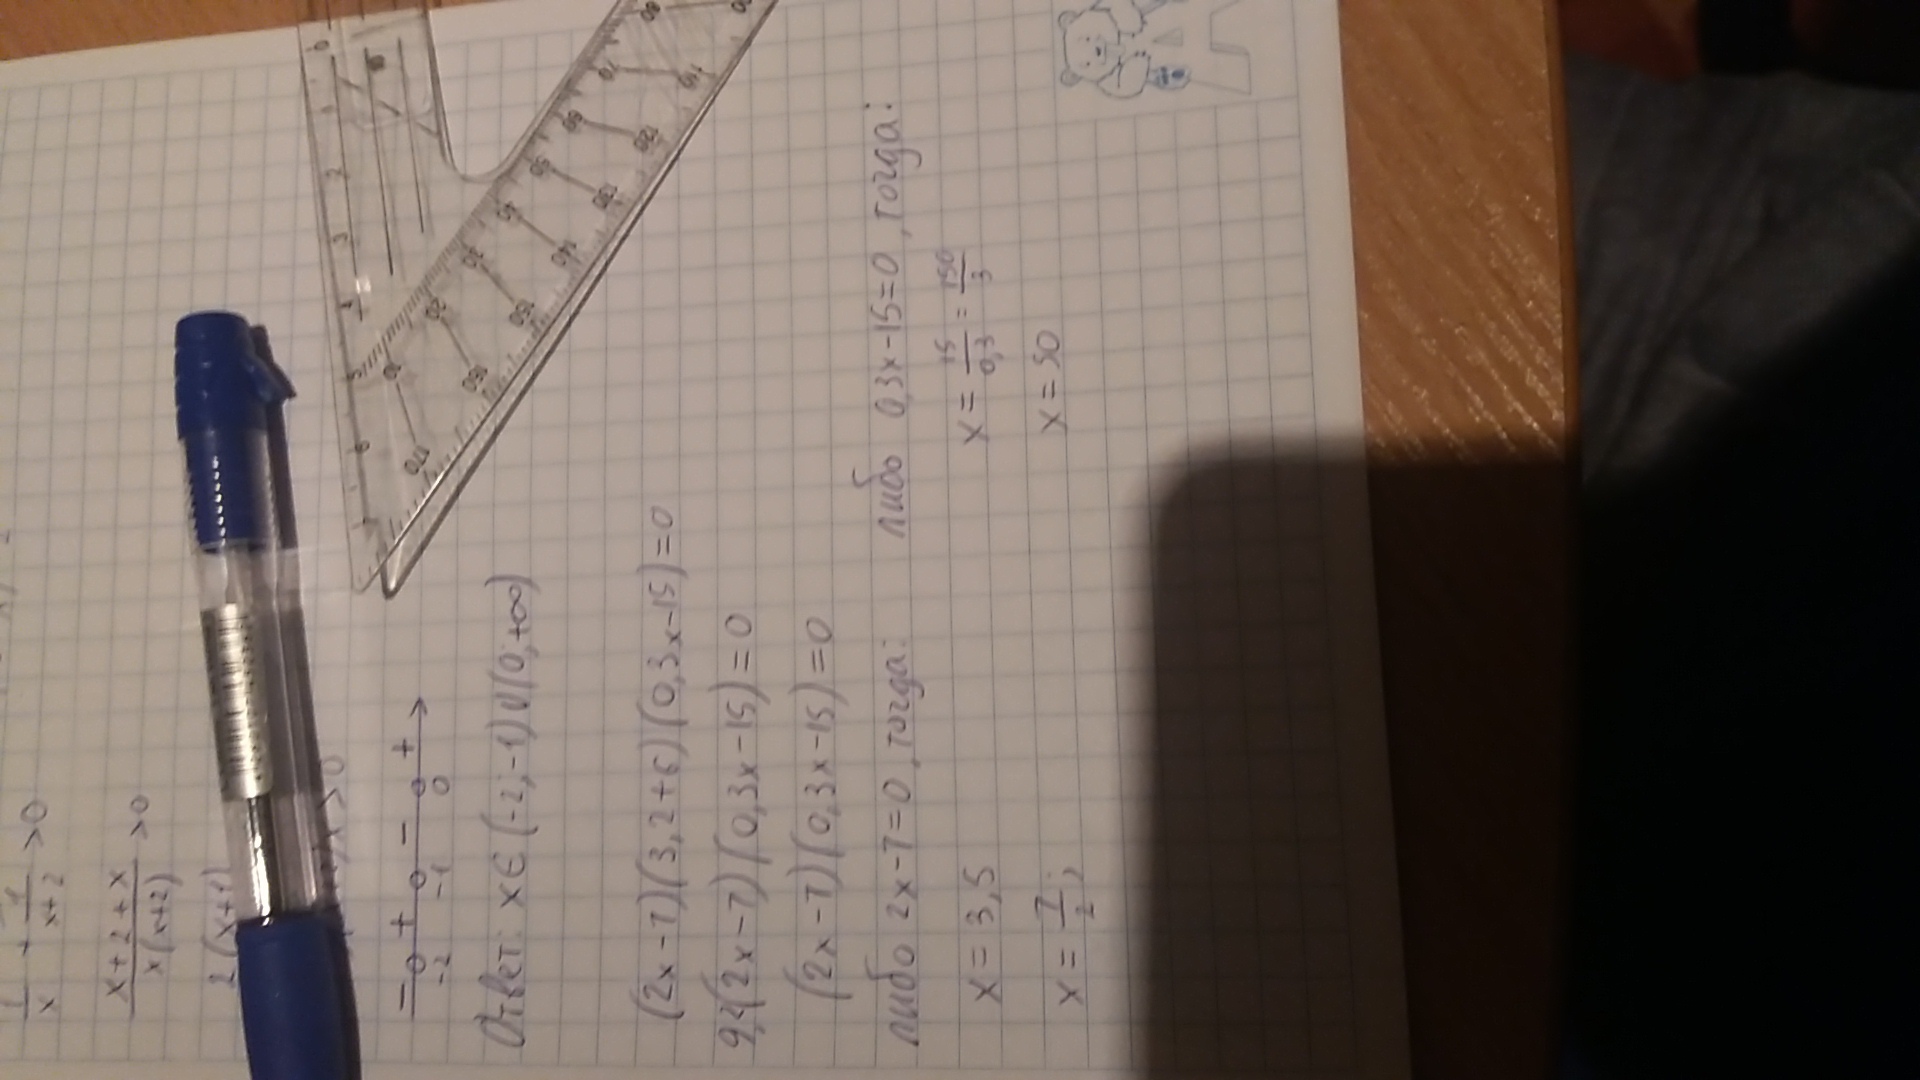 1/x + 1/(x+2) >0
(x+2+x)/(x(x+2)) >0
2(x+1)
>0
− + − +
-2 -1 0
Ответ: x∈(-2;-1)∪(0;+∞)
(2x-7)(3,2+6)(0,3x-15)=0
9,2(2x-7)(0,3x-15)=0
(2x-7)(0,3x-15)=0
либо 2x-7=0, тогда: либо 0,3x-15=0, тогда:
x=3,5 x=15/0,3=150/3
x=7/2; x=50